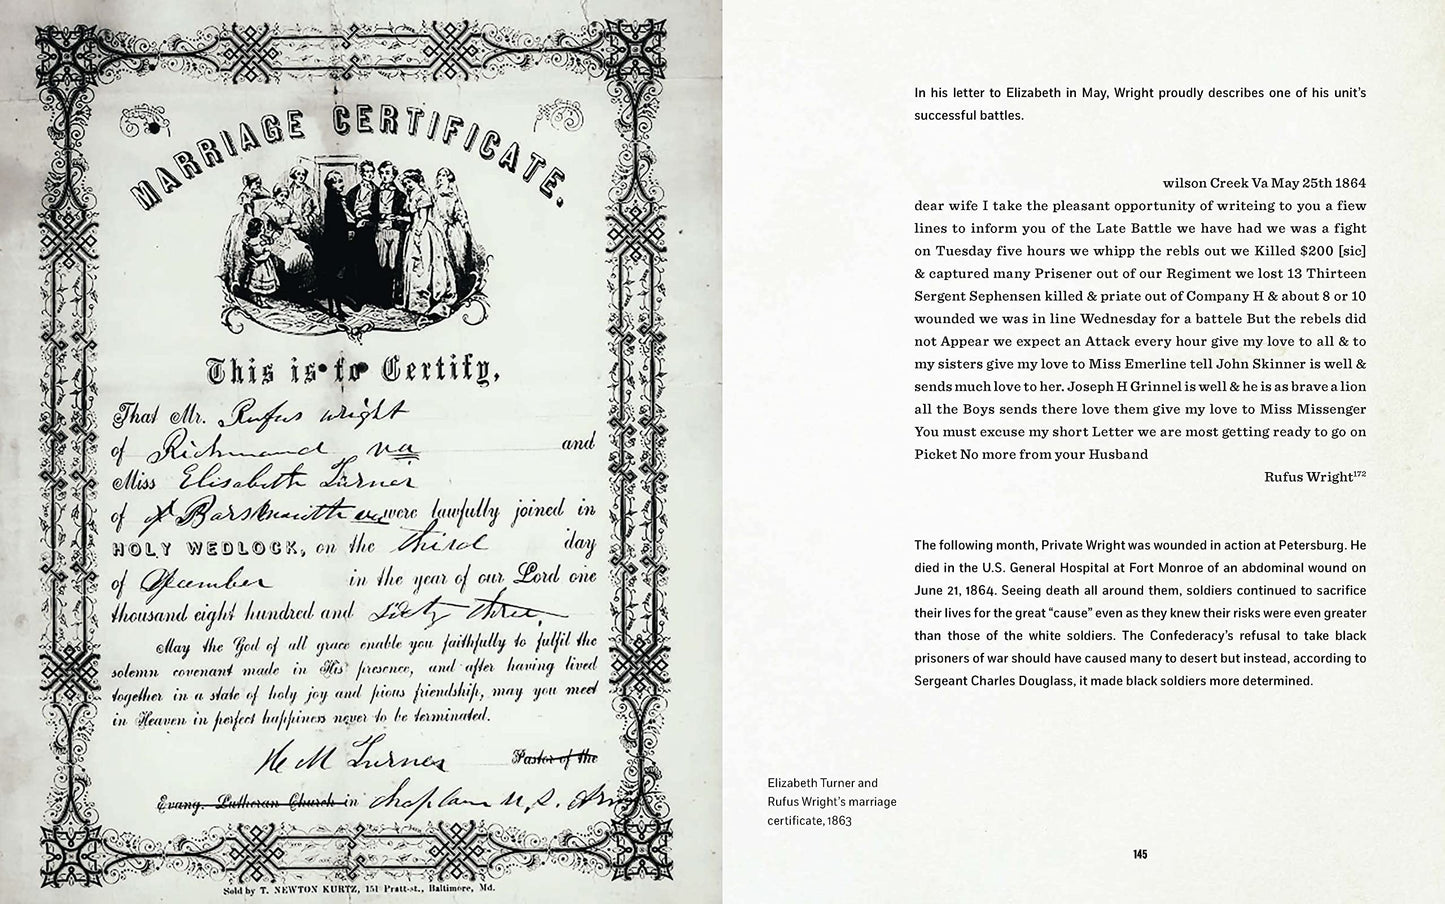 MARRIAGE CERTIFICATE.
This is to Certify,
That Mr. Rufus wright
of Richmond va and
Miss Elisabeth Turner
of va were lawfully joined in
HOLY WEDLOCK, on the third day
of December in the year of our Lord one
thousand eight hundred and sixty three,
May the God of all grace enable you faithfully to fulfil the
solemn covenant made in His presence, and after having lived
together in a state of holy joy and pious friendship, may you meet
in Heaven in perfect happiness never to be terminated.
H M Turner Pastor of the
Evang. Lutheran Church in chaplain U, S. Army
Sold by T. NEWTON KURTZ, 151 Pratt-st., Baltimore, Md.
In his letter to Elizabeth in May, Wright proudly describes one of his unit's
successful battles.
wilson Creek Va May 25th 1864
dear wife I take the pleasant opportunity of writeing to you a fiew
lines to inform you of the Late Battle we have had we was a fight
on Tuesday five hours we whipp the rebls out we Killed $200 [sic]
& captured many Prisener out of our Regiment we lost 13 Thirteen
Sergent Sephensen killed & priate out of Company H & about 8 or 10
wounded we was in line Wednesday for a battele But the rebels did
not Appear we expect an Attack every hour give my love to all & to
my sisters give my love to Miss Emerline tell John Skinner is well &
sends much love to her. Joseph H Grinnel is well & he is as brave a lion
all the Boys sends there love them give my love to Miss Missenger
You must excuse my short Letter we are most getting ready to go on
Picket No more from your Husband
Rufus Wright172
The following month, Private Wright was wounded in action at Petersburg. He
died in the U.S. General Hospital at Fort Monroe of an abdominal wound on
June 21, 1864. Seeing death all around them, soldiers continued to sacrifice
their lives for the great "cause" even as they knew their risks were even greater
than those of the white soldiers. The Confederacy's refusal to take black
prisoners of war should have caused many to desert but instead, according to
Sergeant Charles Douglass, it made black soldiers more determined.
Elizabeth Turner and
Rufus Wright's marriage
certificate, 1863
145